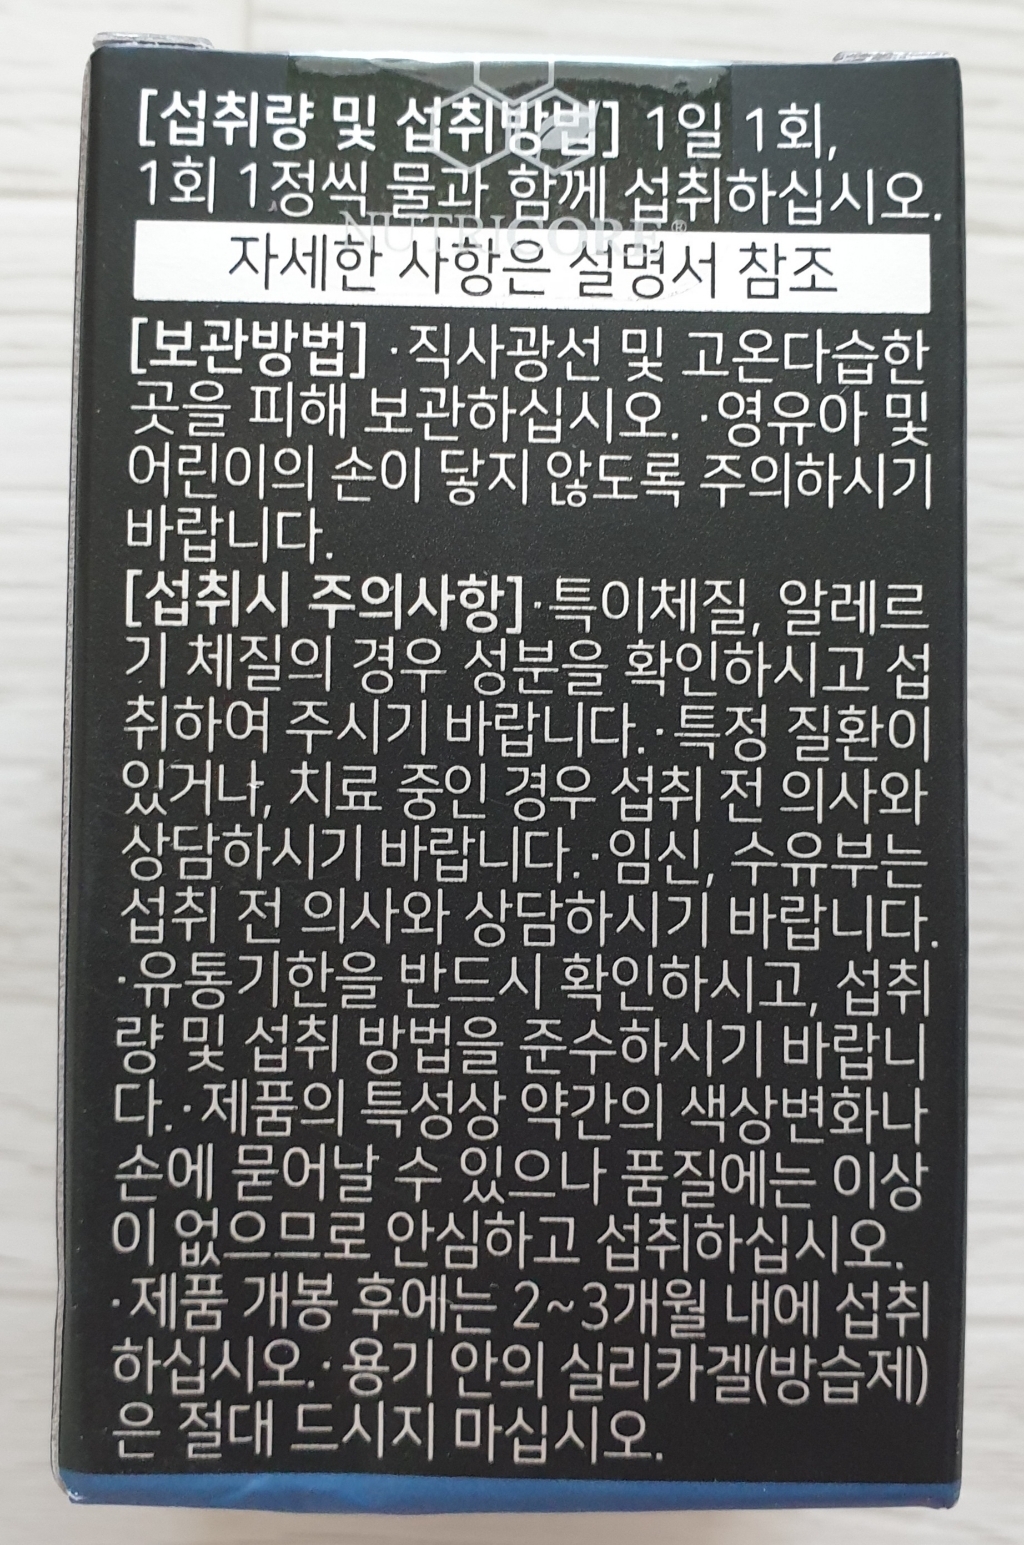 [섭취량 및 섭취방법] 1일 1회,
1회 1정씩 물과 함께 섭취하십시오.
NUTRICORE®
자세한 사항은 설명서 참조
[보관방법] ·직사광선 및 고온다습한
곳을 피해 보관하십시오. ·영유아 및
어린이의 손이 닿지 않도록 주의하시기
바랍니다.
[섭취시 주의사항]·특이체질, 알레르
기 체질의 경우 성분을 확인하시고 섭
취하여 주시기 바랍니다.·특정 질환이
있거나, 치료 중인 경우 섭취 전 의사와
상담하시기 바랍니다.·임신, 수유부는
섭취 전 의사와 상담하시기 바랍니다.
·유통기한을 반드시 확인하시고, 섭취
량 및 섭취 방법을 준수하시기 바랍니
다.·제품의 특성상 약간의 색상변화나
손에 묻어날 수 있으나 품질에는 이상
이 없으므로 안심하고 섭취하십시오.
·제품 개봉 후에는 2~3개월 내에 섭취
하십시오.·용기 안의 실리카겔(방습제)
은 절대 드시지 마십시오.